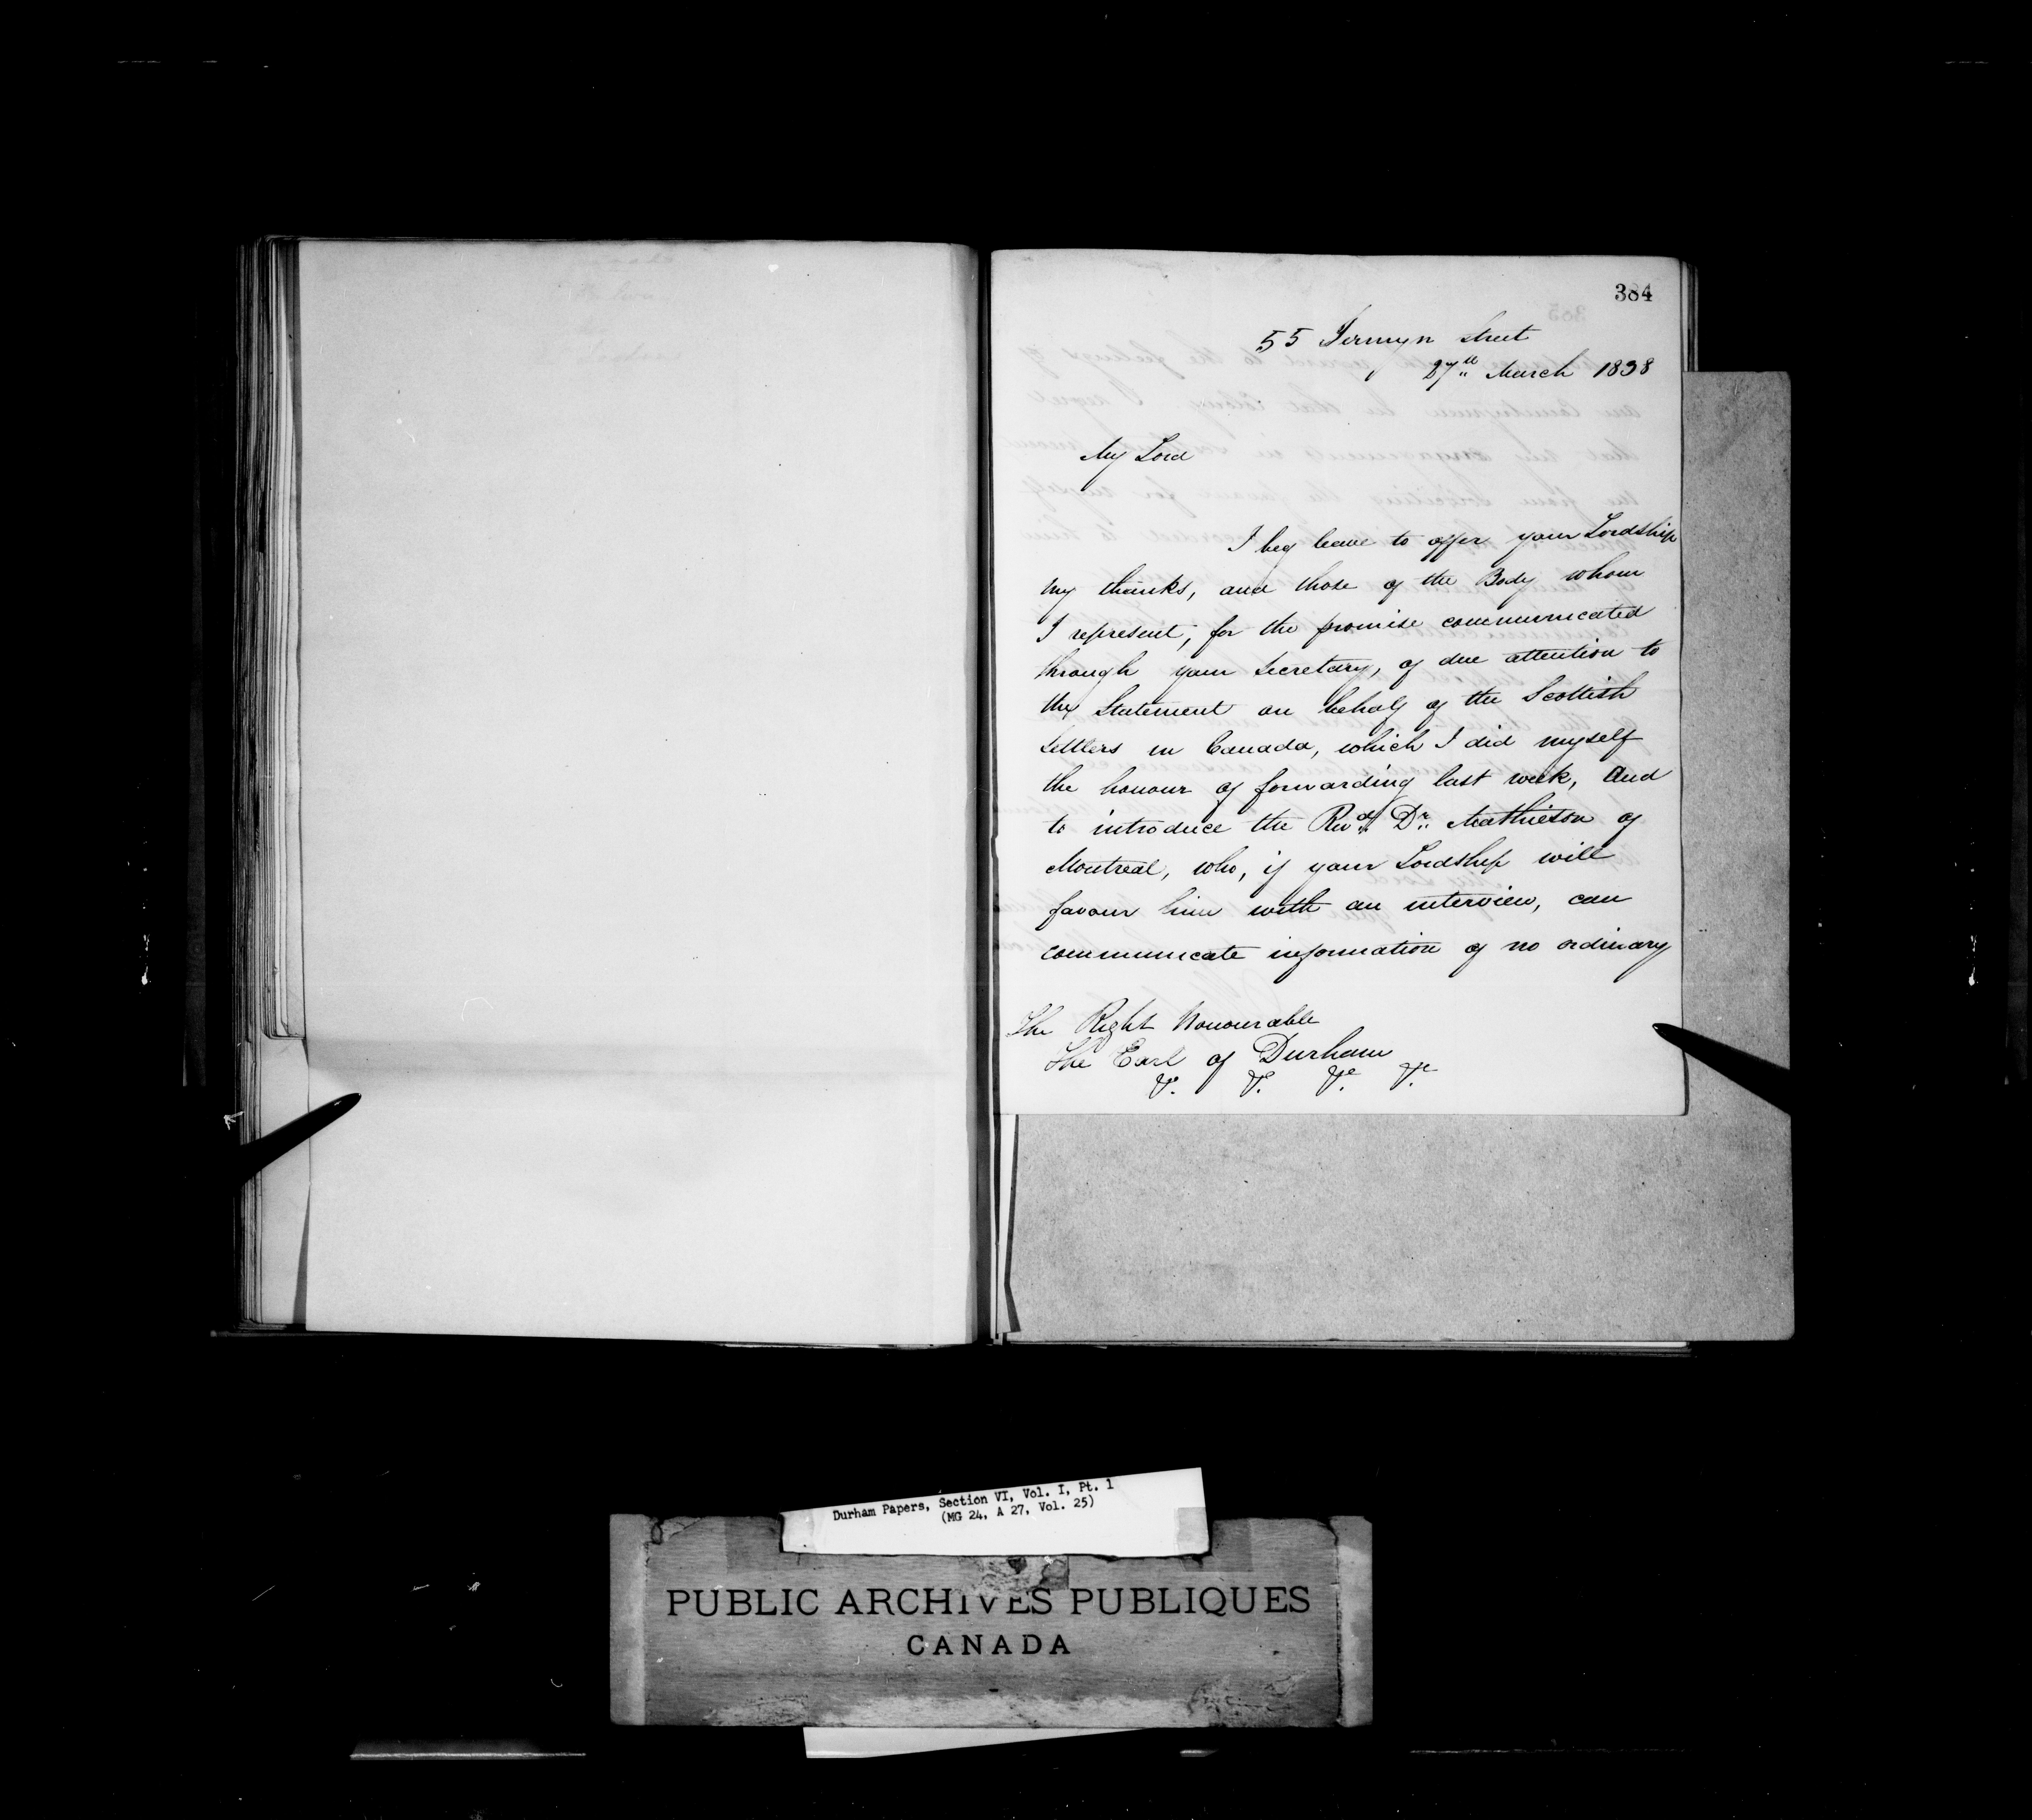 384
55 Jermyn Street
27th March 1838
My Lord
I beg leave to offer your Lordship
my thanks, and those of the Body whom
I represent, for the promise communicated
through your Secretary, of due attention to
the Statement on behalf of the Scottish
Settlers in Canada, which I did myself
the honour of forwarding last week, and
to introduce the Revd. Dr. Mathieson of
Montreal, who, if your Lordship will
favour him with an interview, can
communicate information of no ordinary
The Right Honourable
The Earl of Durham
Durham Papers, Section VI, Vol. I, Pt. 1
(MG 24, A 27, Vol. 25)
PUBLIC ARCHIVES PUBLIQUES
CANADA